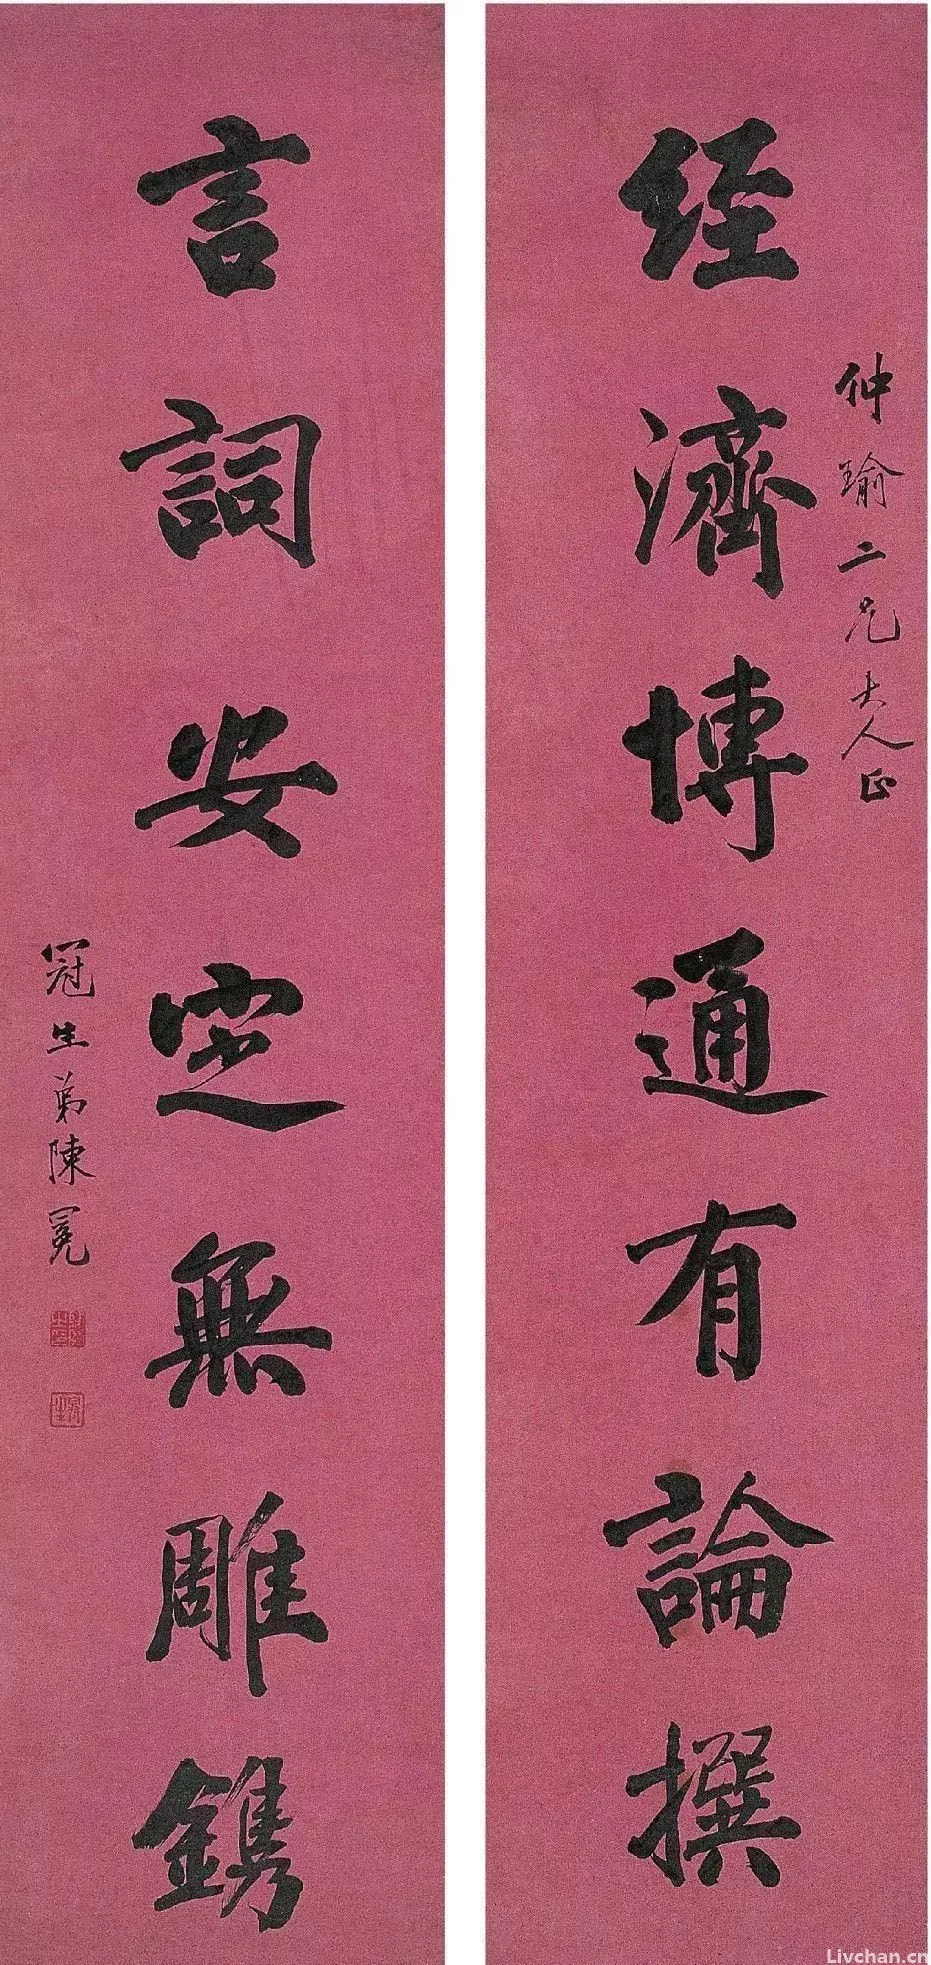 仲瑜二兄大人正
經濟博通有論撰
言詞安定無雕鐫
冠生弟陳冕
Livchan.cn